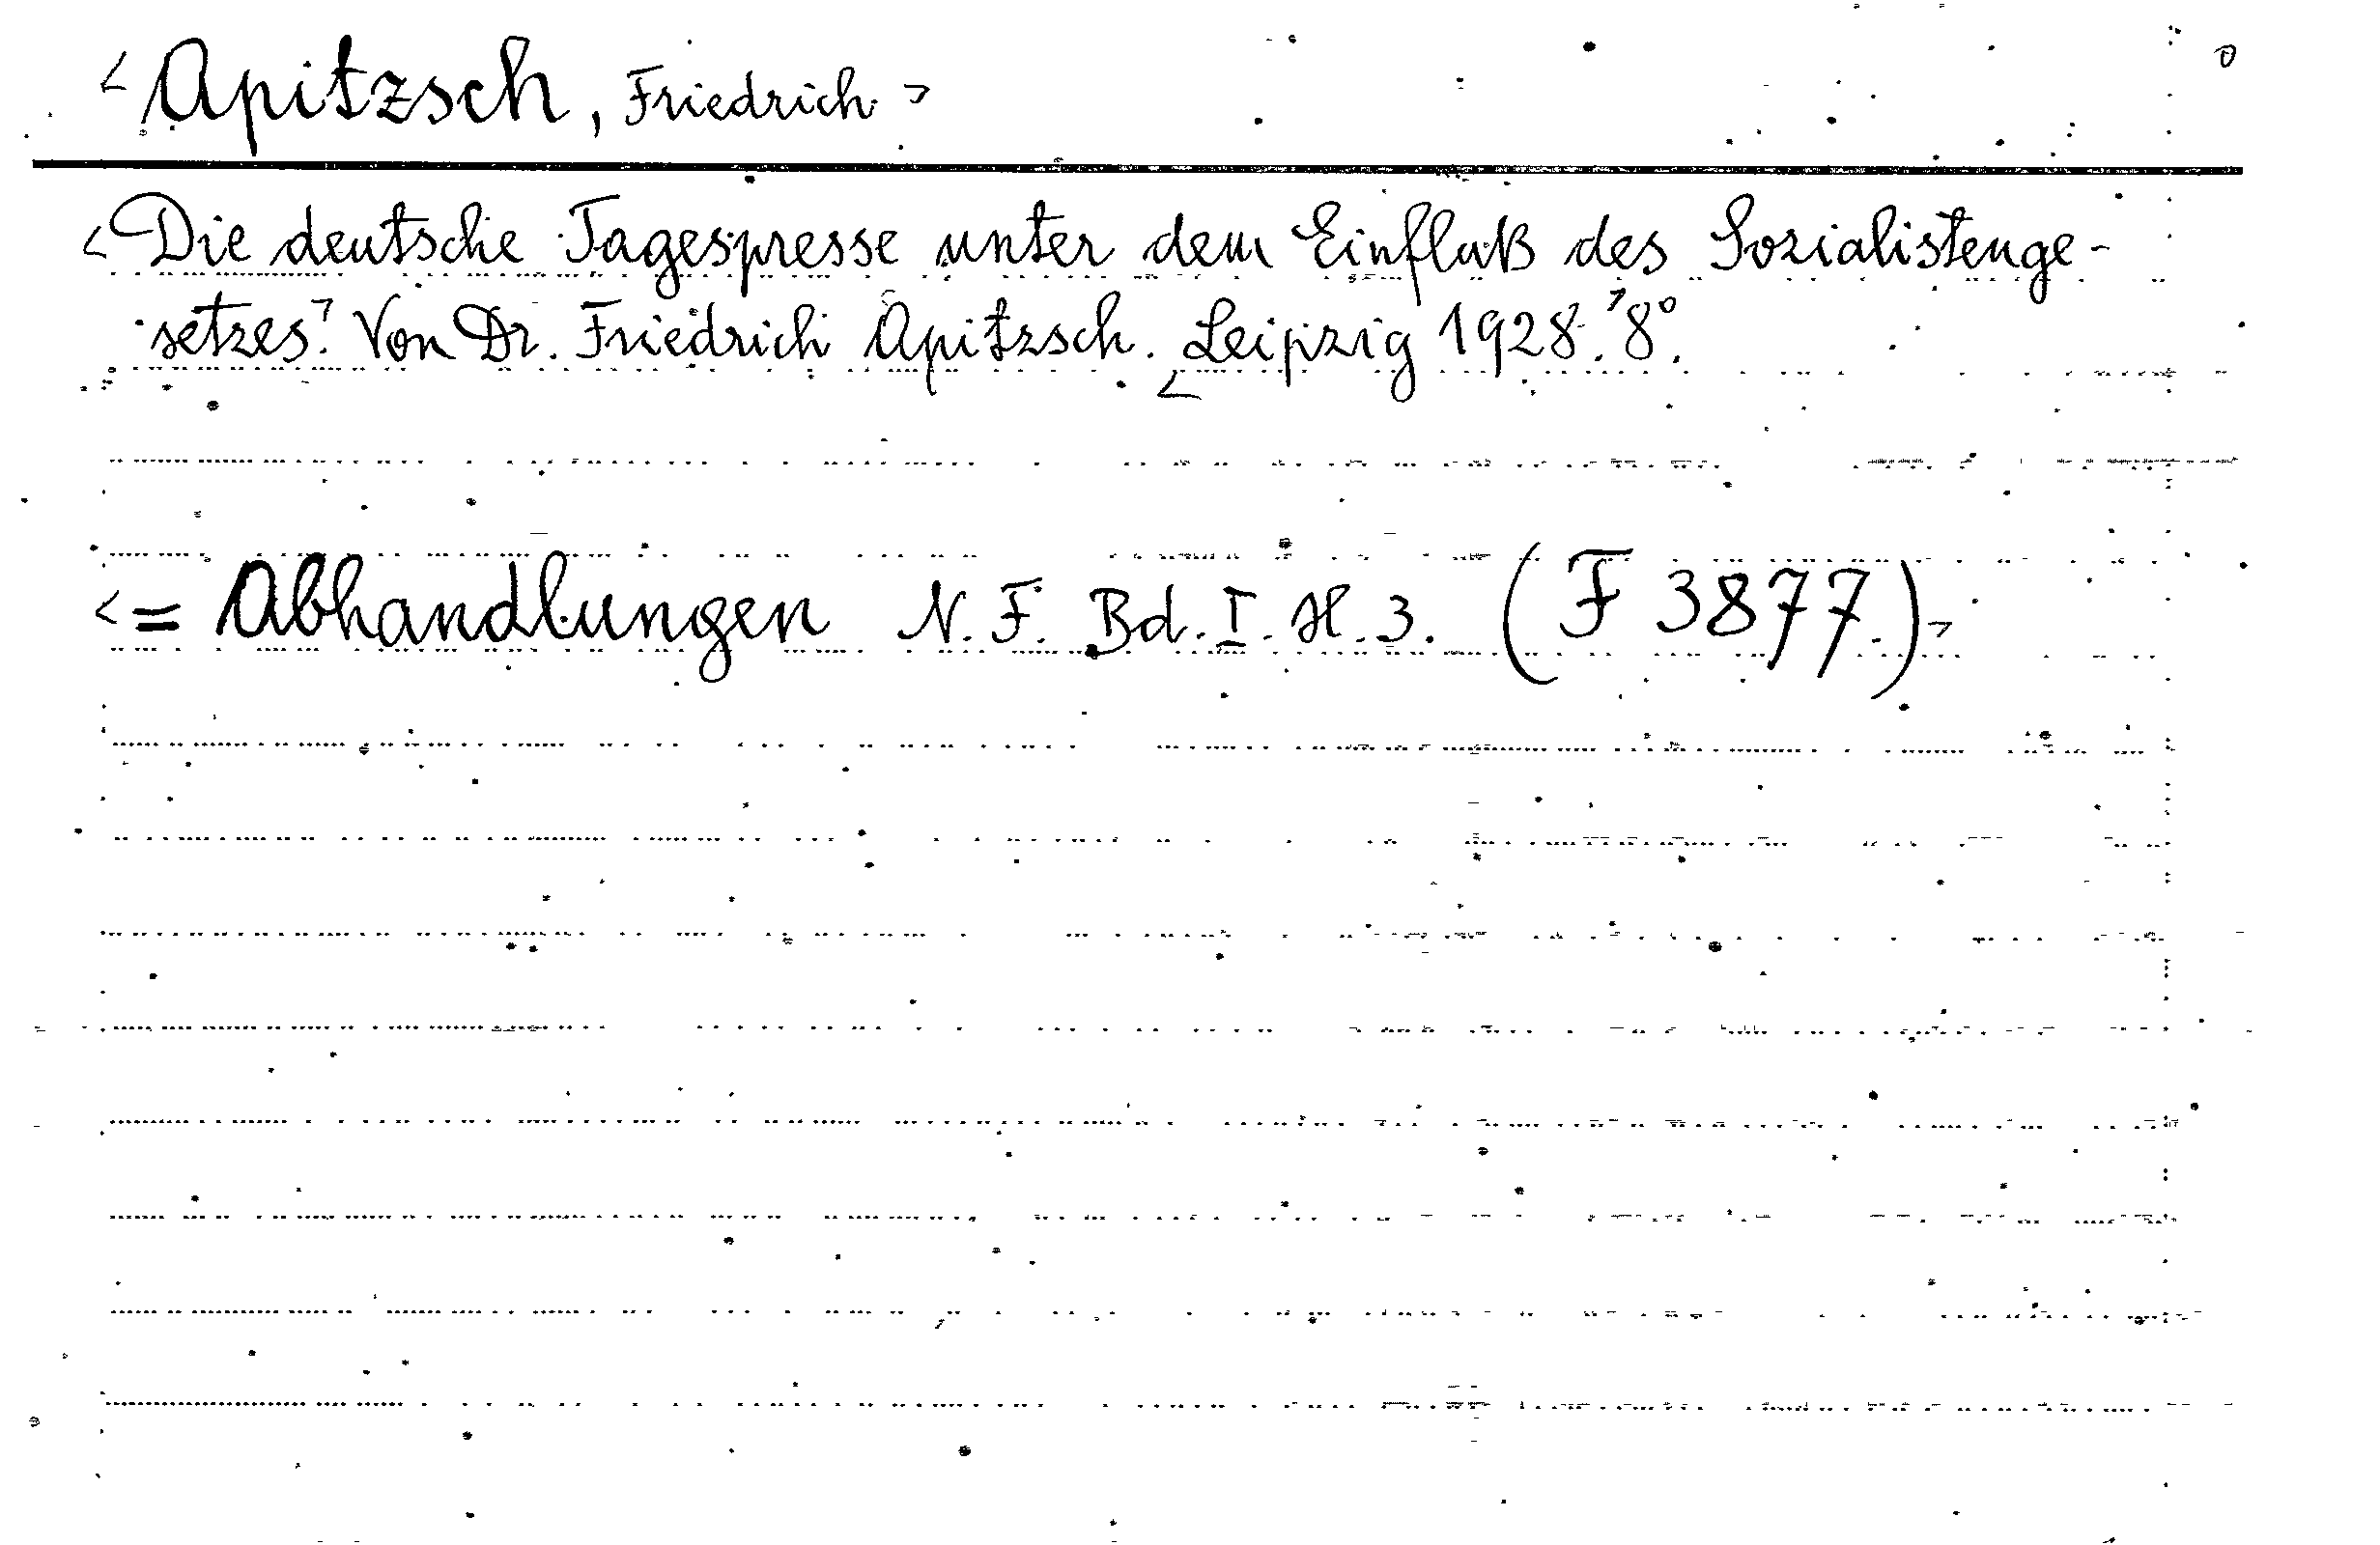 <Apitzsch, Friedrich>
<Die deutsche Tagespresse unter dem Einfluß des Sozialistenge-
setzes.> Von Dr. Friedrich Apitzsch. <Leipzig 1928.> 8°.
<= Abhandlungen N. F. Bd. I. H. 3. (F 3877.)>